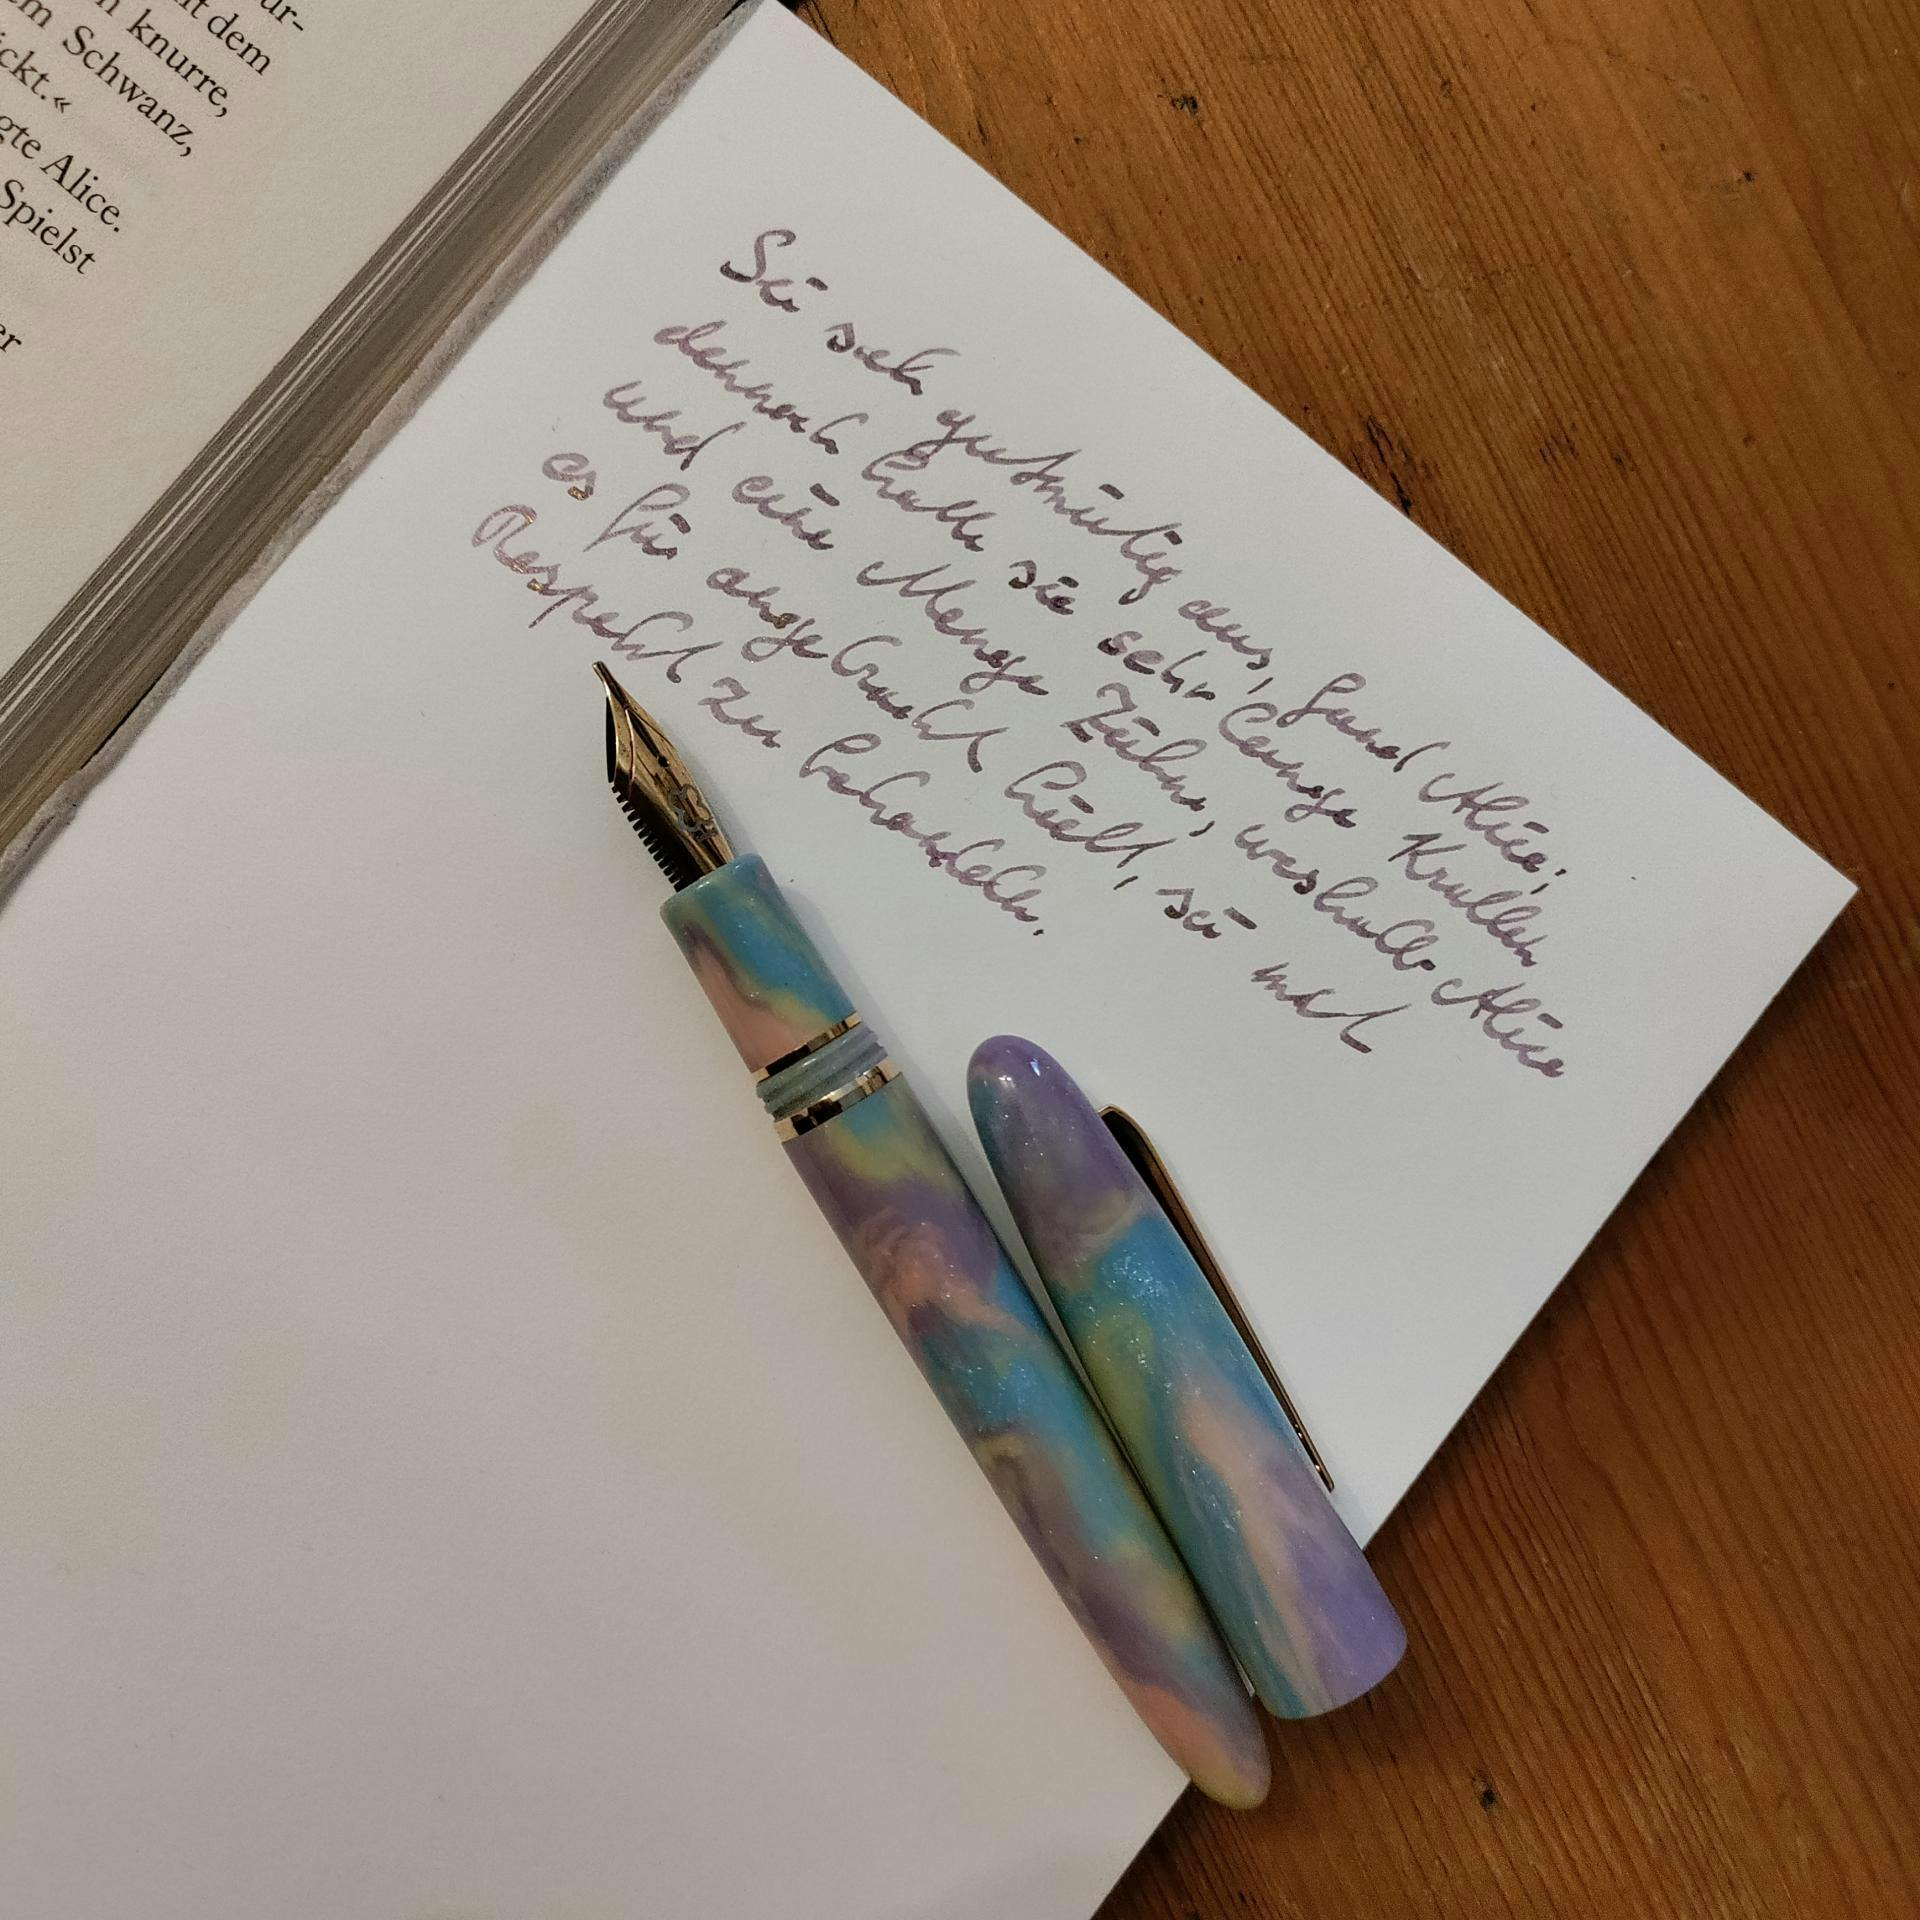 ur-
t dem
n knurre,
em Schwanz,
ickt.«
gte Alice.
Spielst
er
Sie sah gutmütig aus, fand Alice;
dennoch hatte sie sehr lange Krallen
und eine Menge Zähne, weshalb Alice
es für angebracht hielt, sie mit
Respekt zu behandeln.